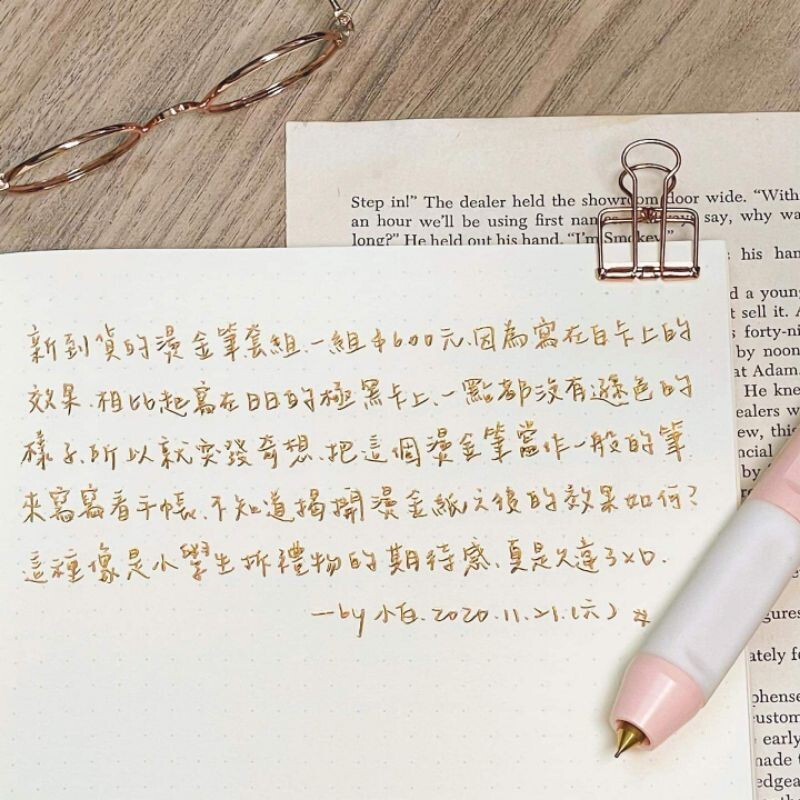 Step in!" The dealer held the showroom door wide. "With
an hour we'll be using first say, why wa
long?" He held out his hand. "I'm Smokey."
his han
d a young
t sell it. A
s forty-ni
by noon
at Adam.
He knew
ealers w
ew, this
ncial
by
新到貨的燙金筆套組.一組$600元.因為寫在白卡上的
效果.相比起寫在日日的極黑卡上.一點都沒有遜色的
樣子.所以就突發奇想.把這個燙金筆當作一般的筆
來寫寫看手帳.不知道揭開燙金紙之後的效果如何?
這種像是小學生拆禮物的期待感.真是久違了xD.
—by 小白.2020.11.21.(六)
gures
ately fe
phense
ustom
early
made t
edgear